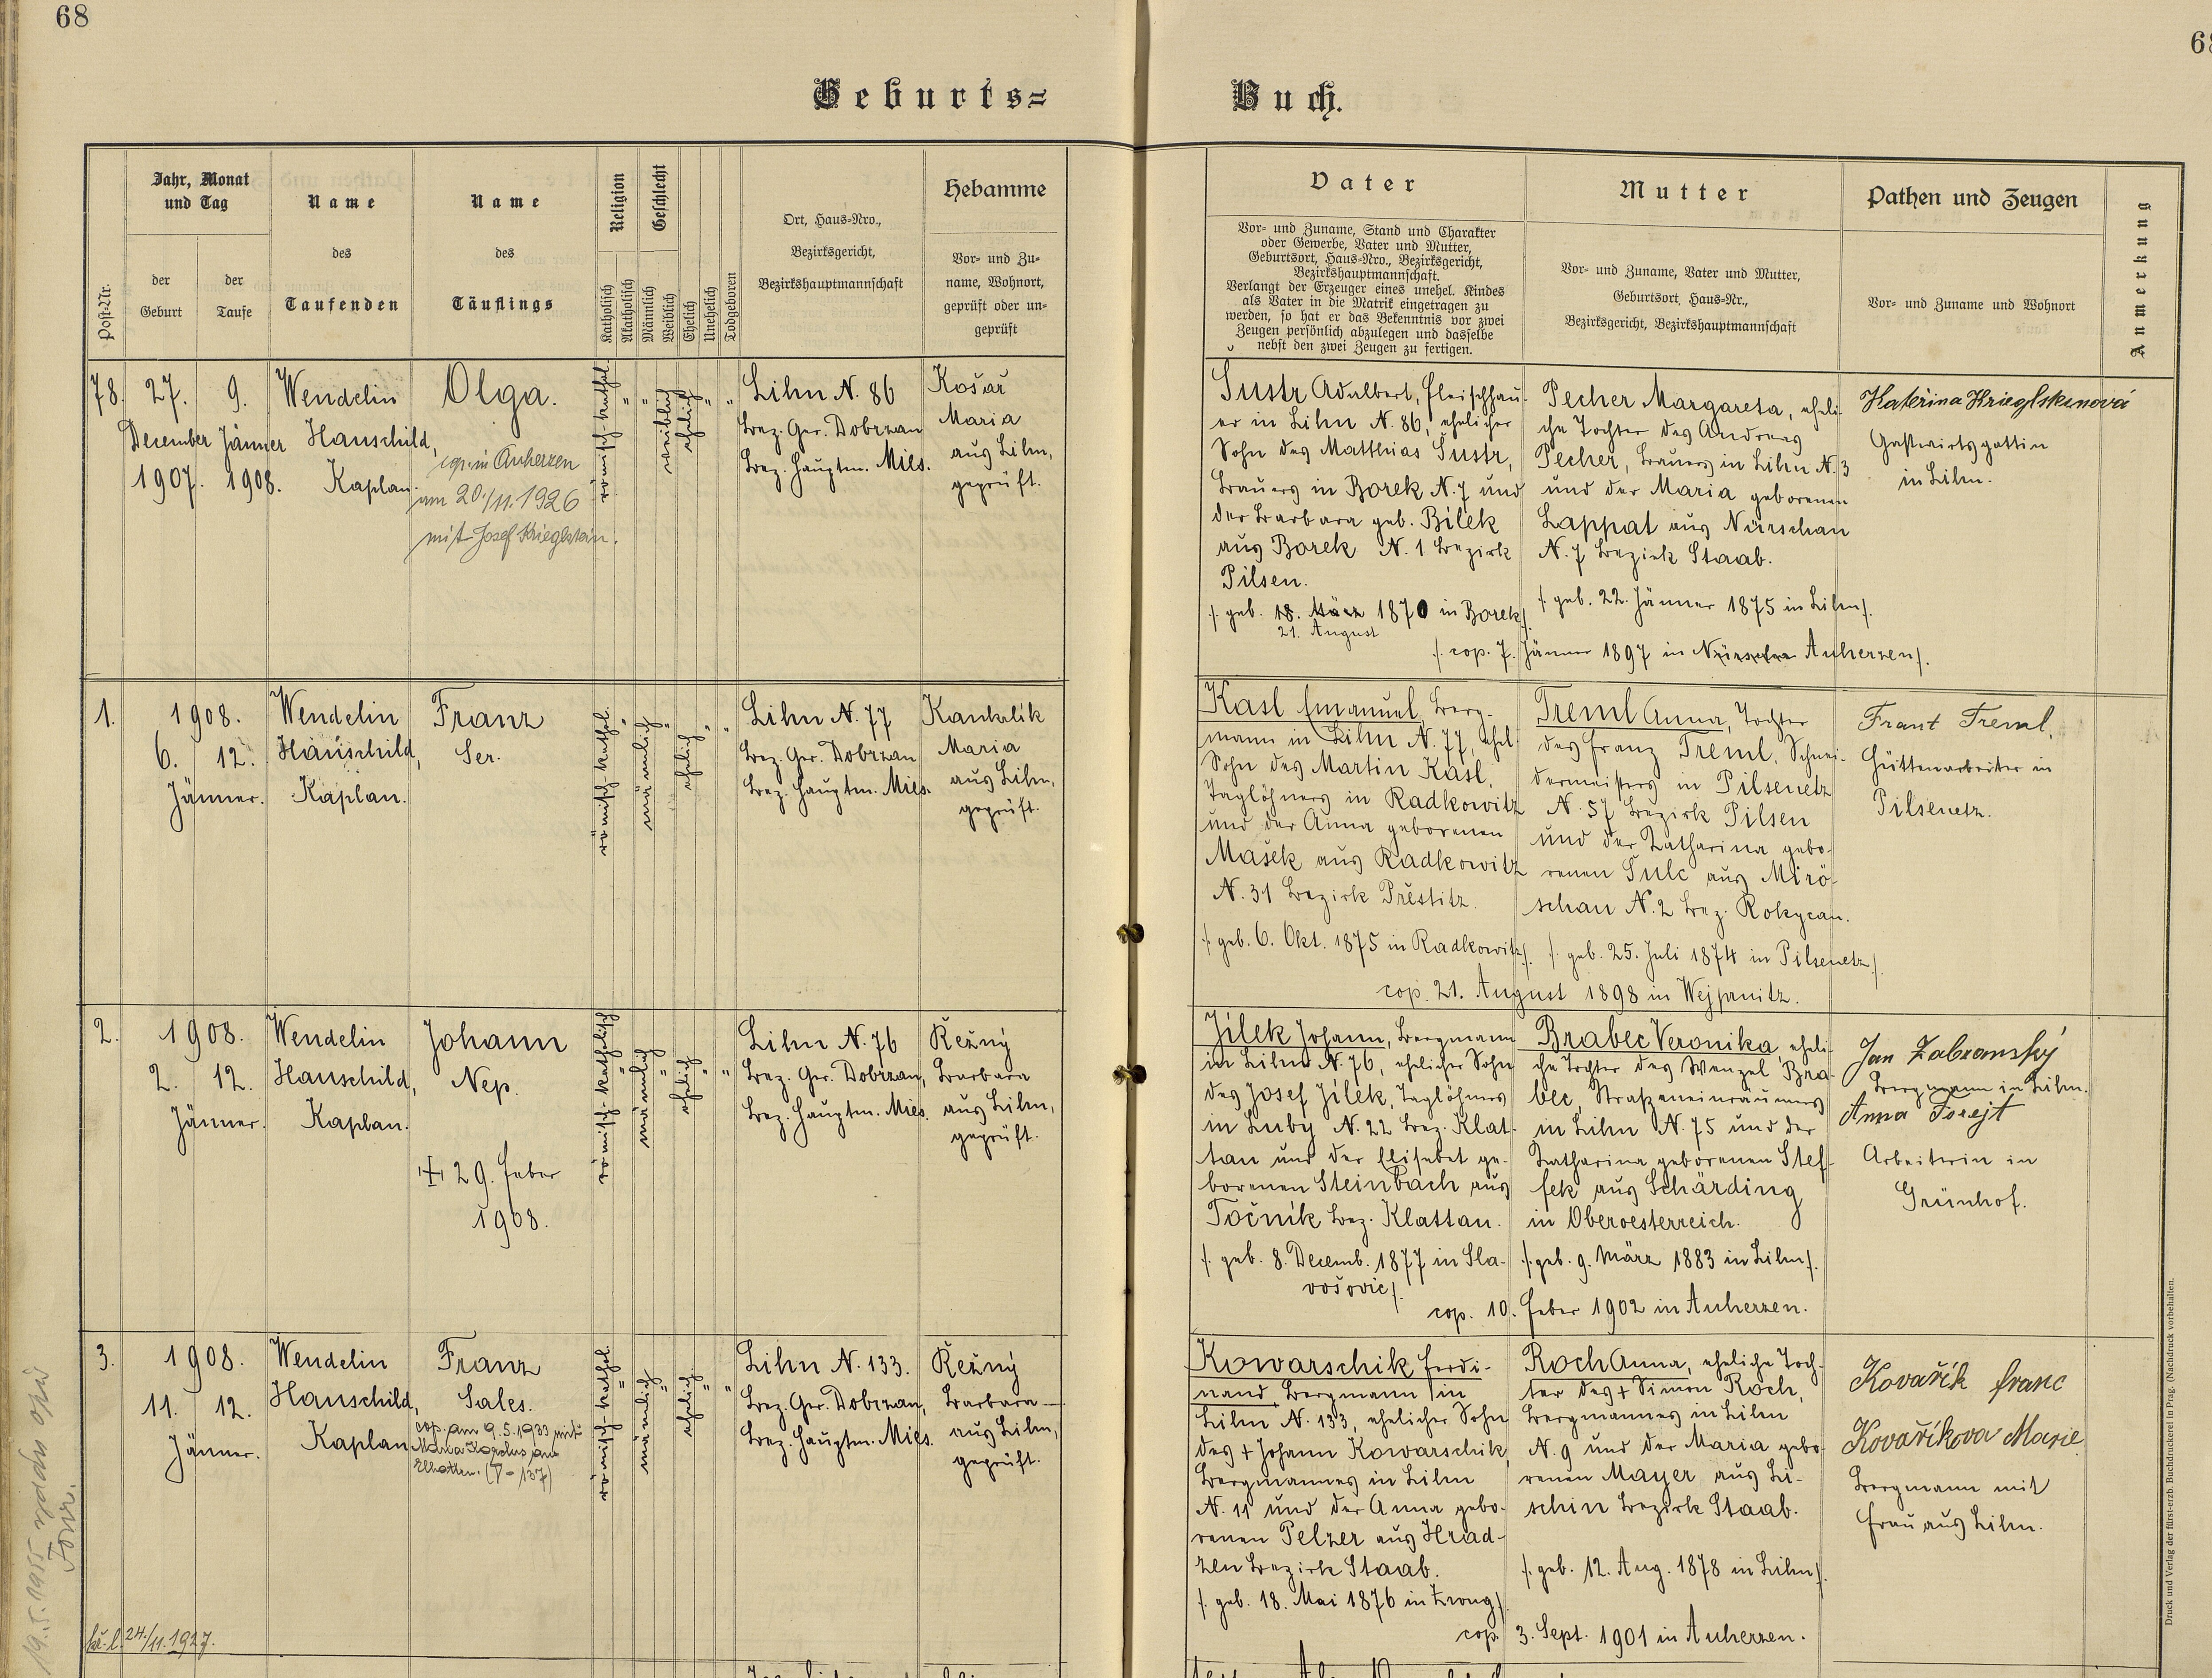 68
68
Geburts=
Buch.
Post-Nr.
Jahr, Monat
und Tag
der
Geburt
der
Taufe
Name
des
Taufenden
Name
des
Täuflings
Religion
Katholisch
Akatholisch
Geschlecht
Männlich
Weiblich
Ehelich
Unehelich
Todgeboren
Ort, Haus-Nro.,
Bezirksgericht,
Bezirkshauptmannschaft
Hebamme
Vor- und Zu-
name, Wohnort,
geprüft oder un-
geprüft
Vater
Vor- und Zuname, Stand und Charakter
oder Gewerbe, Vater und Mutter,
Geburtsort, Haus-Nro., Bezirksgericht,
Bezirkshauptmannschaft.
Verlangt der Erzeuger eines unehel. Kindes
als Vater in die Matrik eingetragen zu
werden, so hat er das Bekenntnis vor zwei
Zeugen persönlich abzulegen und dasselbe
nebst den zwei Zeugen zu fertigen.
Mutter
Vor- und Zuname, Vater und Mutter,
Geburtsort, Haus-Nr.,
Bezirksgericht, Bezirkshauptmannschaft
Pathen und Zeugen
Vor- und Zuname und Wohnort
Anmerkung
78.
27.
December
1907.
9.
Jänner
1908.
Wendelin
Hauschild,
Kaplan.
Olga.
cop. in Auherzen
am 20./11. 1926
mit Josef Krieglstein.
römisch-kathol.
"
"
weiblich
ehelich
"
"
Lihn N. 86
Bez. Ger. Dobrzan
Bez. Hauptm. Mies.
Košař
Maria
aus Lihn,
geprüft.
Šustr Adalbert, Fleischhau-
er in Lihn N. 86, ehelicher
Sohn des Matthias Šustr,
Bauers in Borek N. 7 und
der Barbara geb. Bílek
aus Borek N. 1 Bezirk
Pilsen.
/. geb. 18. März 1870 in Borek/.
21. August
Pecher Margareta, eheli-
che Tochter des Andreas
Pecher, Bauers in Lihn N. 3
und der Maria geborenen
Lappat aus Nürschan
N. 7 Bezirk Staab.
/. geb. 22. Jänner 1875 in Lihn/.
/. cop. 7. Jänner 1897 in Nürschan Auherzen/.
Gastwirtsgattin
in Lihn.
1.
1908.
6. 12.
Jänner.
Wendelin
Hauschild,
Kaplan.
Franz
Ser.
römisch-kathol.
"
männlich
"
ehelich
"
"
Lihn N. 77
Bez. Ger. Dobrzan
Bez. Hauptm. Mies.
Kankrlik
Maria
aus Lihn,
geprüft.
Kasl Emanuel, Berg-
mann in Lihn N. 77, ehel.
Sohn des Martin Kasl,
Taglöhners in Radkowitz
und der Anna geborenen
Mašek aus Radkowitz
N. 31 Bezirk Přestitz.
/. geb. 6. Okt. 1875 in Radkowitz/.
Treml Anna, Tochter
des Franz Treml, Schnei-
dermeisters in Pilsenetz
N. 57 Bezirk Pilsen
und der Katharina gebo-
renen Šulc aus Mirö-
schau N. 2 Bez. Rokycan.
/. geb. 25. Juli 1874 in Pilsenetz/.
cop. 21. August 1898 in Wejprnitz.
Frant Treml,
Hüttenarbeiter in
Pilsenetz.
2.
1908.
2. 12.
Jänner.
Wendelin
Hauschild,
Kaplan.
Johann
Nep.
+ 29. Feber
1908.
römisch-katholisch
"
männlich
"
ehelich
"
"
Lihn N. 76
Bez. Ger. Dobrzan,
Bez. Hauptm. Mies.
Řežný
Barbara
aus Lihn,
geprüft.
Jílek Johann, Bergmann
in Lihn N. 76, ehelicher Sohn
des Josef Jílek, Taglöhners
in Luby N. 22 Bez. Klat-
tau und der Elisabet ge-
borenen Steinbach aus
Točník Bez. Klattau.
/. geb. 8. Decemb. 1877 in Sla-
vošovic/.
Brabec Veronika, eheli-
che Tochter des Wenzel Bra-
bec, Straßeneinräumers
in Lihn N. 75 und der
Katharina geborenen Stef-
fek aus Schärding
in Oberoesterreich.
/. geb. 9. März 1883 in Lihn/.
cop. 10. Feber 1902 in Auherzen.
Jan Zabranský
Bergmann in Lihn.
Anna Forejt
Arbeiterin in
Grünhof.
3.
1908.
11. 12.
Jänner.
Wendelin
Hauschild,
Kaplan
Franz
Sales.
cop. am 9.5.1933 mit
römisch-kathol.
"
männlich
"
ehelich
"
"
Lihn N. 133.
Bez. Ger. Dobrzan,
Bez. Hauptm. Mies.
Řežný
Barbara
aus Lihn,
geprüft.
Kowarschik Ferdi-
nand, Bergmann in
Lihn N. 133, ehelicher Sohn
des + Johann Kowarschik,
Bergmannes in Lihn
N. 11 und der Anna gebo-
renen Pelzer aus Hrad-
zen Bezirk Staab.
/. geb. 18. Mai 1876 in Zwug/.
Roch Anna, eheliche Toch-
ter des + Simon Roch,
Bergmannes in Lihn
N. 9 und der Maria gebo-
renen Mayer aus Li-
schin Bezirk Staab.
/. geb. 12. Aug. 1878 in Lihn/.
cop. 3. Sept. 1901 in Auherzen.
Kovařík Franc
Kovaříkova Marie
Bergmann mit
Frau aus Lihn.
24./11. 1927.
19.5.1955 vydán opis
Druck und Verlag der fürst-erzb. Buchdruckerei in Prag. (Nachdruck vorbehalten.